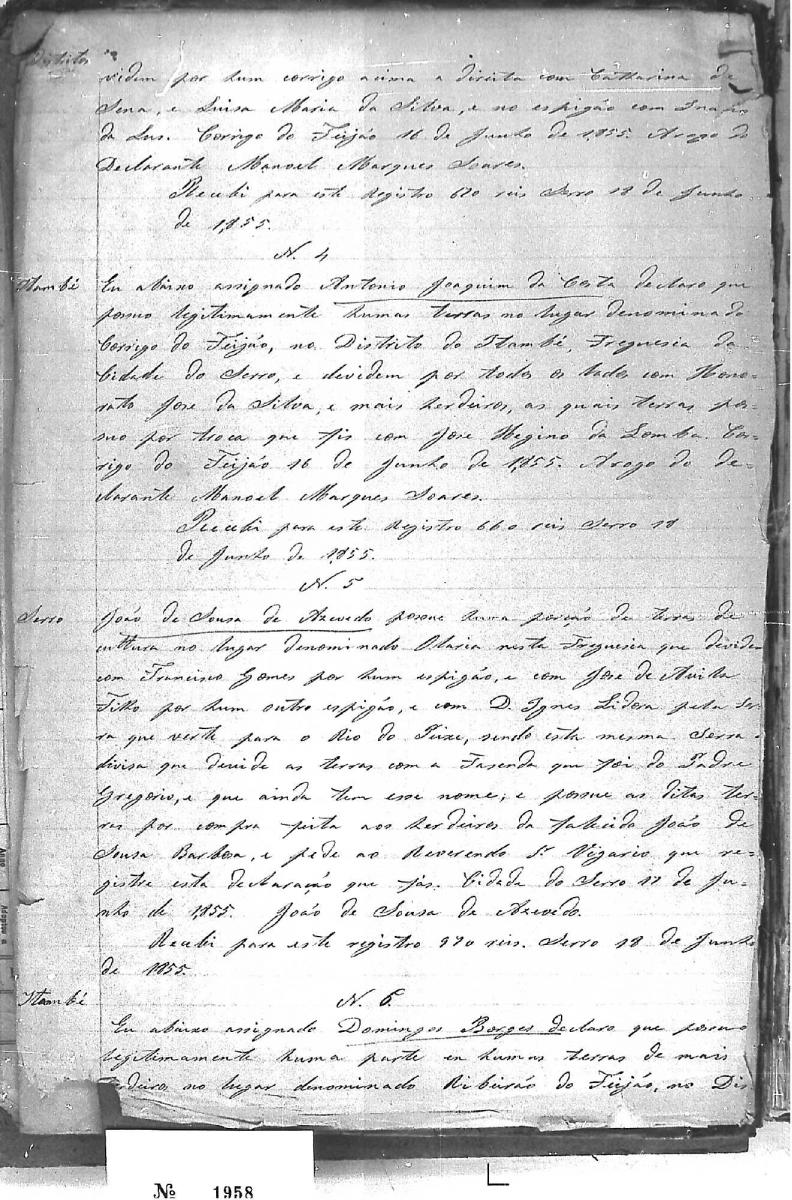 Distritos
videm por hum corrigo acima a direita com Catharina de
Sena, e Luisa Maria da Silva, e no espigão com
da Lus. Corrigo do Feijão 16 de Junho de 1,855. Arogo do
Declarante Manoel Marques Soares.
Recebi para este Registro 620 reis Serro 18 de Junho
de 1,855.
N. 4
Itambé
Eu abaixo assignado Antonio Joaquim da Costa declaro que
posuo legitimamente humas terras no lugar denominado
Corrigo do Feijão, no Distrito do Itambé, Freguesia da
Cidade do Serro, e devidem por todos os lados com Hono-
rato Jose da Silva, e mais herdeiros, as quais terras po-
suo por troca que fis com Jose Hegino da Lomba. Cor-
rigo do Feijão 16 de Junho de 1,855. Arogo do de-
clarante Manoel Marques Soares.
Recebi para este Registro 660 reis Serro 18
de Junho de 1,855.
N. 5
Serro
João de Sousa de Azevedo posue huma porção de terras de
cultura no lugar denominado Olaria nesta Freguesia que devidem
com Francisco Gomes por hum espigão, e com Jose de Avila
Filho por hum outro espigão, e com D. Ignes Lidora pela Ser-
ra que verte para o Rio do Peixe, sendo esta mesma Serra
divisa que devide as terras com a Fasenda que foi do Padre
Gregorio, e que ainda tem esse nome; e posue as ditas ter-
ras por compra feita aos herdeiros da falecida João de
Sousa Barbosa, e pede ao Reverendo Sr. Vigario que re-
gistre esta declaração que fas. Cidade do Serro 17 de Ju-
nho de 1,855. João de Sousa de Azevedo.
Recebi para este registro 970 reis. Serro 18 de Junho
de 1855.
Itambé
N. 6
Eu abaixo assignado Domingos Borges declaro que posuo
legitimamente huma parte en humas terras de mais
erdeiros no lugar denominado Ribeirão do Feijão, no Dis
Nº 1958